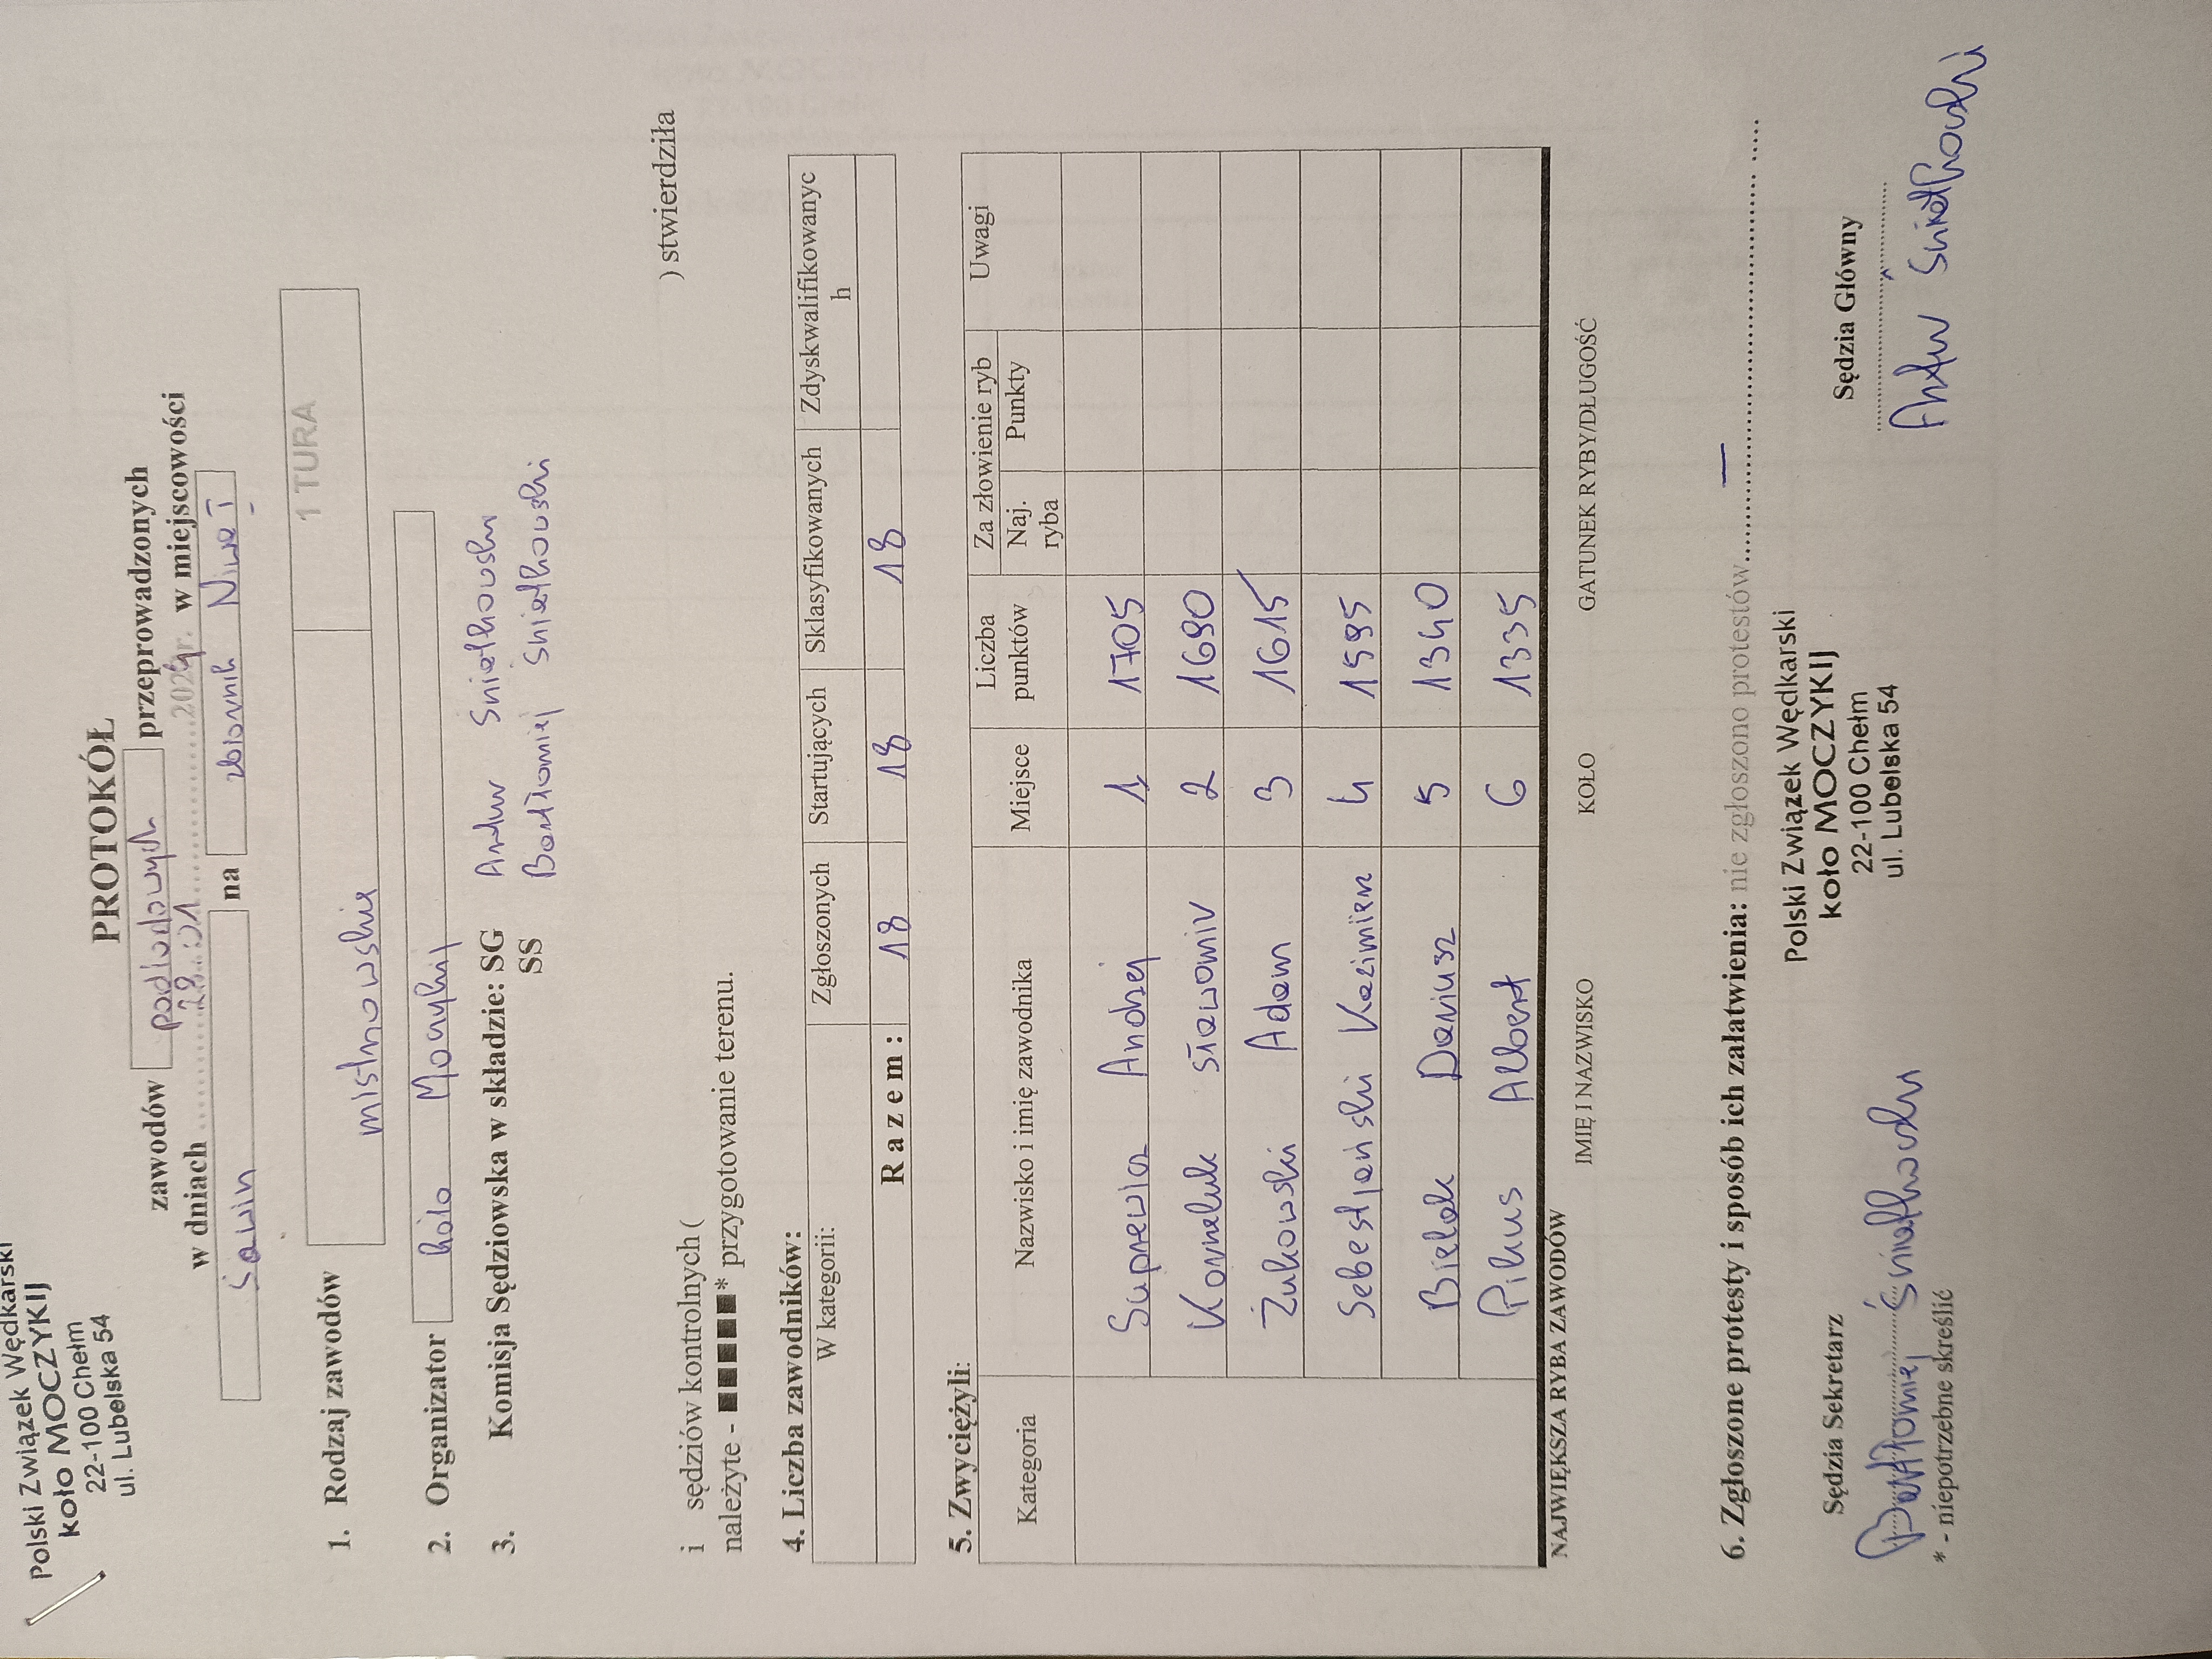 Polski Związek Wędkarski
koło MOCZYKIJ
22-100 Chełm
ul. Lubelska 54
PROTOKÓŁ
zawodów podlodowych przeprowadzonych
w dniach 28.01 2024r. w miejscowości
Sawin na zbiornik Niwa I
1. Rodzaj zawodów mistrzowskie 1 TURA
2. Organizator koło Moczykij
3. Komisja Sędziowska w składzie: SG Artur Śniatkowski
SS Bartłomiej Śniatkowski
i sędziów kontrolnych ( ) stwierdziła
należyte - ■■■■■* przygotowanie terenu.
4. Liczba zawodników:
W kategorii: Zgłoszonych Startujących Sklasyfikowanych Zdyskwalifikowanyc
h
R a z e m : 18 18 18
5. Zwyciężyli:
Kategoria Nazwisko i imię zawodnika Miejsce Liczba punktów Za złowienie ryb Uwagi
Naj. ryba Punkty
Suprewicz Andrzej 1 1705
Korneluk Sławomir 2 1690
Żukowski Adam 3 1615
Sebestjański Kazimierz 4 1595
Bielak Dariusz 5 1340
Pikus Albert 6 1335
NAJWIĘKSZA RYBA ZAWODÓW IMIĘ I NAZWISKO KOŁO GATUNEK RYBY/DŁUGOŚĆ
6. Zgłoszone protesty i sposób ich załatwienia: nie zgłoszono protestów.... —
Polski Związek Wędkarski
koło MOCZYKIJ
22-100 Chełm
ul. Lubelska 54
Sędzia Sekretarz Sędzia Główny
Bartłomiej Śniatkowski Artur Śniatkowski
* - niepotrzebne skreślić